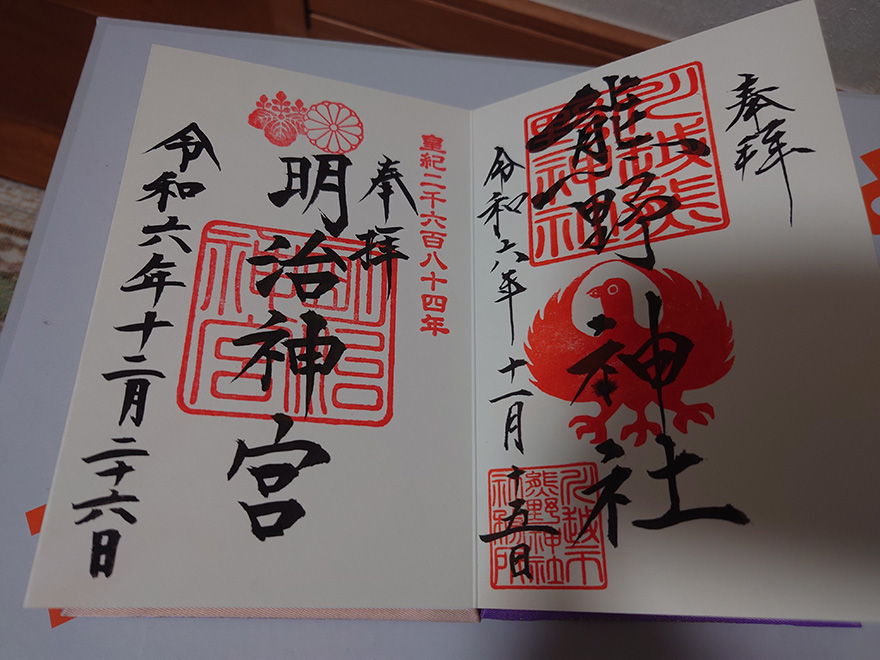 奉拝
川越熊
野神社
熊野神社
令和六年 十一月 十五日
川越市
熊野神社
皇紀二千六百八十四年
奉拝
明治神宮
明治
神宮
令和六年十二月二十六日